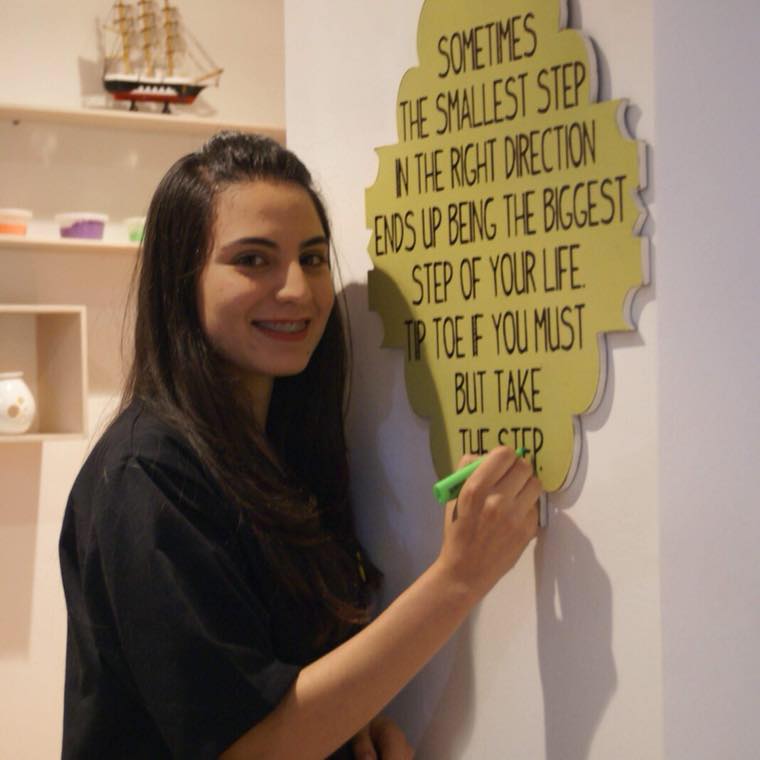 SOMETIMES
THE SMALLEST STEP
IN THE RIGHT DIRECTION
ENDS UP BEING THE BIGGEST
STEP OF YOUR LIFE.
TIP TOE IF YOU MUST
BUT TAKE
THE STEP.